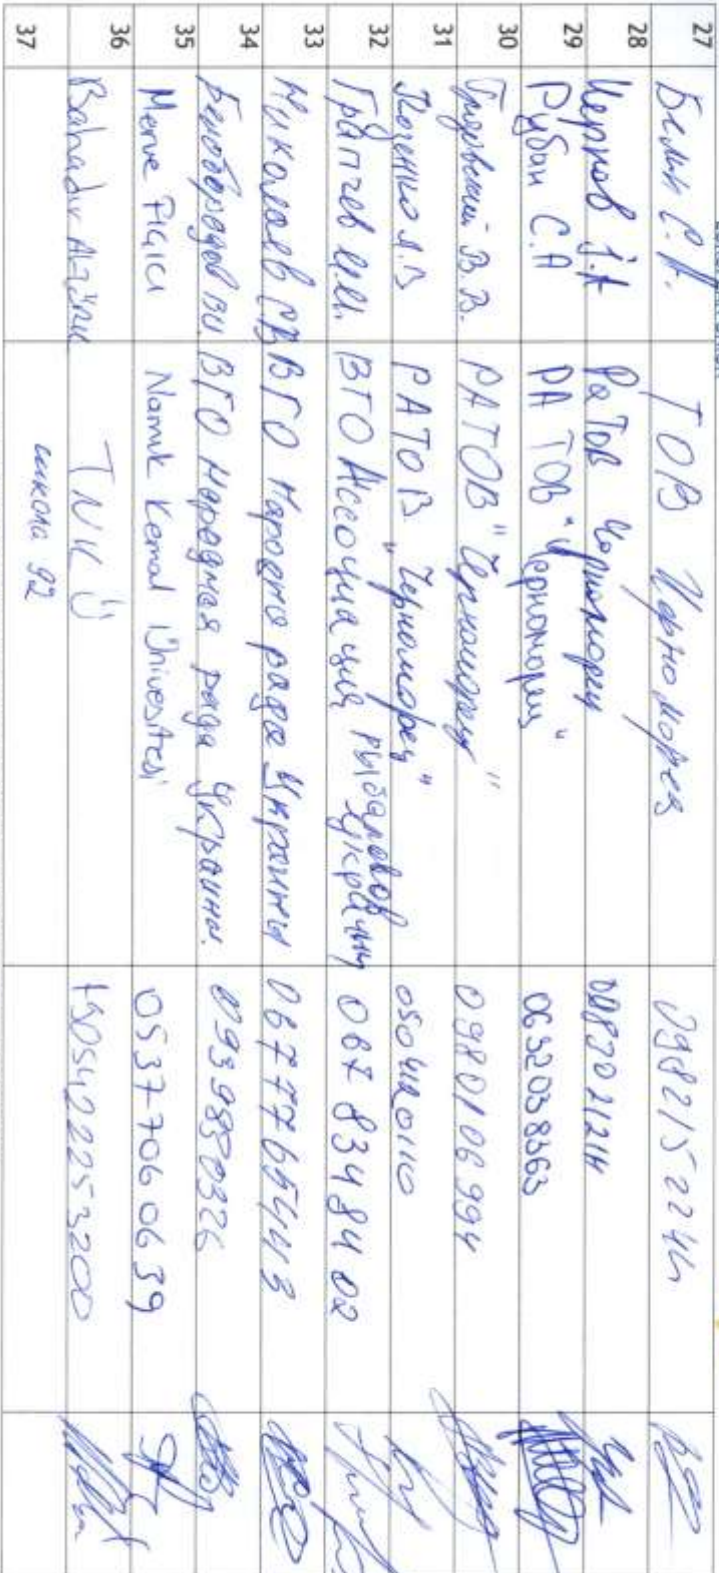 27 Белый С.А. ТОВ Черноморец 0982152244
28 Чернов І.А РаТОВ Черноморец
29 Рубан С.А РА ТОВ "Черноморец" 0632038363
30 В.В. РАТОВ "Черноморец" 0980106994
31 А.В РАТОВ "Черноморец" 0504120110
32 ВГО Ассоциация рыбаков Украины 067 8348402
33 Николаев СВ ВГО Народна рада Украины 0677765443
34 Белобородов ВИ ВГО Народная рада Украины. 0939880326
35 Merve PIGICI Namık Kemal Üniversitesi 05377060639
36 Bahadır ALTÜRK TNKÜ +905422253200
37 школа 92